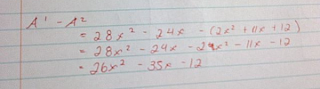 A¹ - A²
= 28x² - 24x - (2x² + 11x + 12)
= 28x² - 24x - 2x² - 11x - 12
= 26x² - 35x - 12